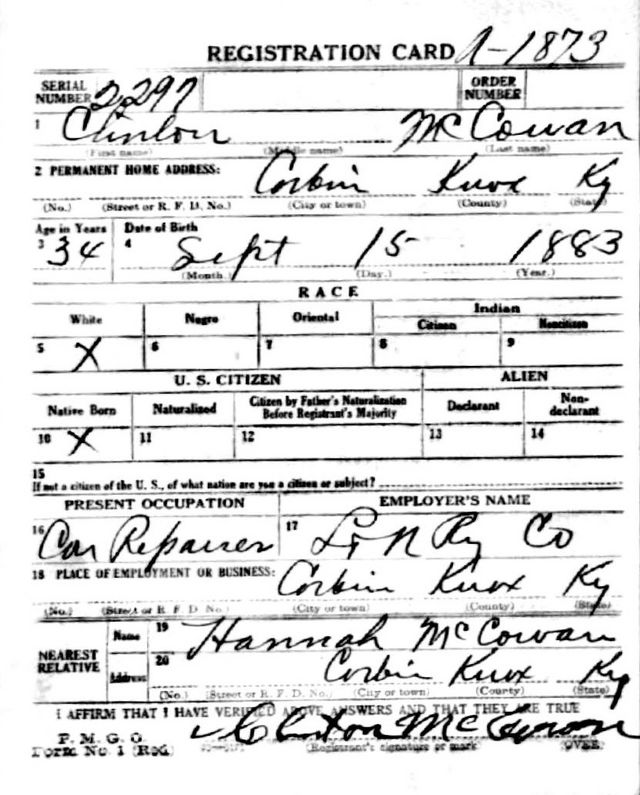 REGISTRATION CARD A-1873
SERIAL NUMBER 2297 ORDER NUMBER
1 Clinton McCowan
(First name) (Middle name) (Last name)
2 PERMANENT HOME ADDRESS: Corbin Knox Ky
(No.) (Street or R. F. D. No.) (City or town) (County) (State)
Age in Years Date of Birth
3 34 4 Sept 15 1883
(Month.) (Day.) (Year.)
RACE
White Negro Oriental Indian
Citizen Noncitizen
5 X 6 7 8 9
U. S. CITIZEN ALIEN
Native Born Naturalized Citizen by Father's Naturalization Before Registrant's Majority Declarant Non-declarant
10 X 11 12 13 14
15
If not a citizen of the U. S., of what nation are you a citizen or subject?
PRESENT OCCUPATION EMPLOYER'S NAME
16 Car Repairer 17 L & N Ry Co
18 PLACE OF EMPLOYMENT OR BUSINESS: Corbin Knox Ky
(No.) (Street or R. F. D. No.) (City or town) (County) (State)
NEAREST RELATIVE Name 19 Hannah McCowan
Address 20 Corbin Knox Ky
(No.) (Street or R. F. D. No.) (City or town) (County) (State)
I AFFIRM THAT I HAVE VERIFIED ABOVE ANSWERS AND THAT THEY ARE TRUE
P. M. G. O.
Form No. 1 (Red) Clinton McCowan
(Registrant's signature or mark) (OVER)